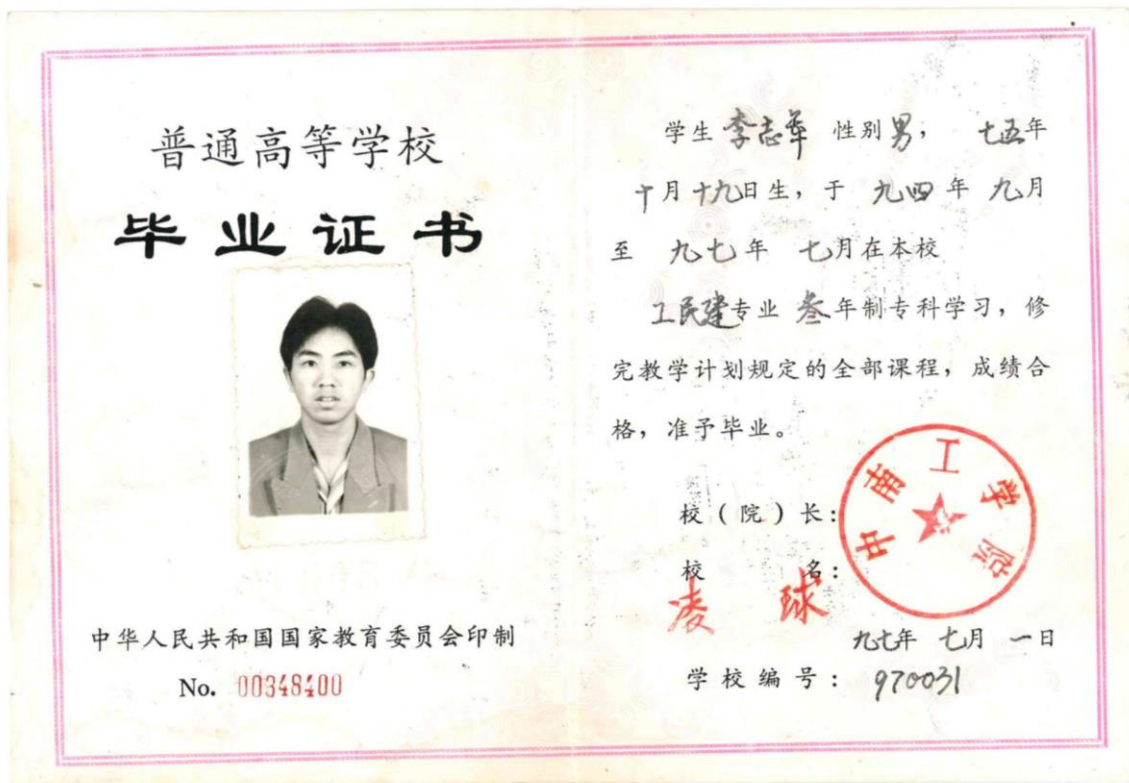 普通高等学校
毕业证书
中华人民共和国国家教育委员会印制
No. 00348400
学生 李志军 性别 男， 七五年
十月十九日生，于 九四年 九月
至 九七年 七月在本校
工民建专业 叁年制专科学习，修
完教学计划规定的全部课程，成绩合
格，准予毕业。
校（院）长：
校 名：
凌 球
中南工学院
九七年 七月 一日
学校编号： 970031